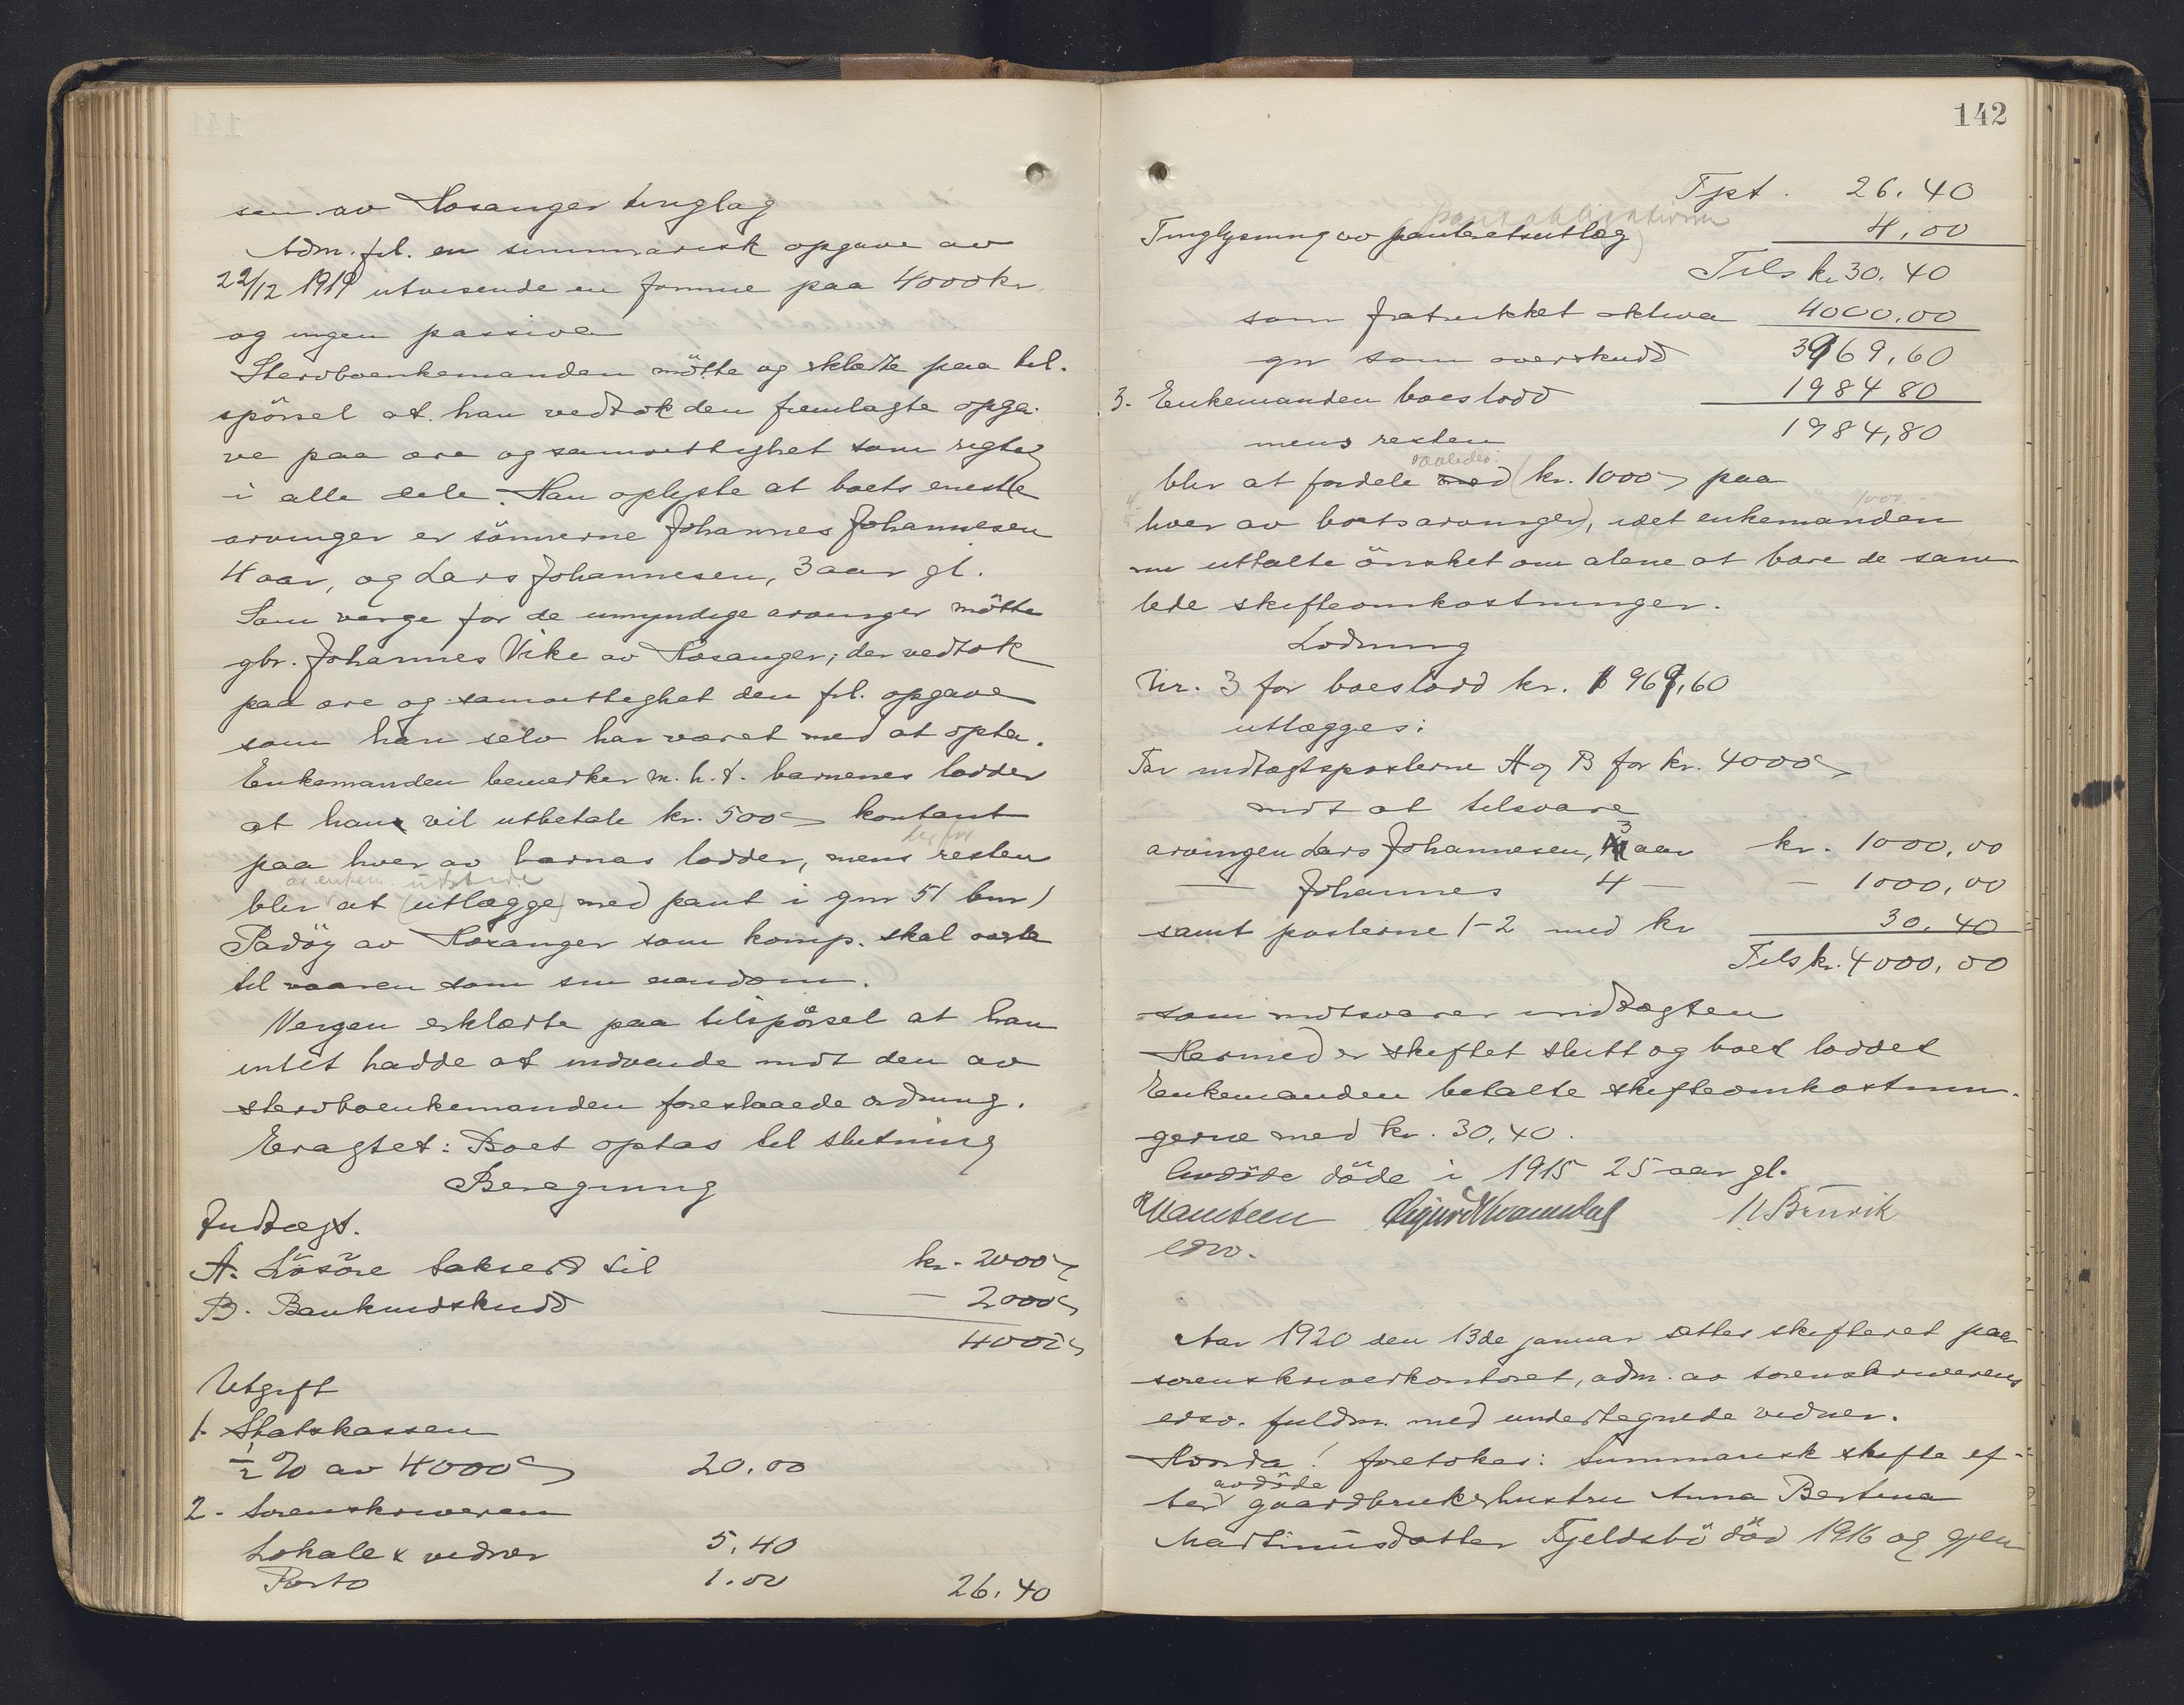 sen av Hosanger tinglag
Adm. frl. en summarisk opgave av
22/12 1919 utvisende en formue paa 4000 kr
og ingen passiva
Stervboenkemanden mötte og erklærte paa til-
spörsel at han vedtok den fremlagte opga-
ve paa ære og samvittighet som rigtig
i alle dele. Han oplyste at boets eneste
arvinger er sönnerne Johannes Johannesen
4 aar, og Lars Johannesen, 3 aar gl.
Som verge for de umyndige arvinger mötte
gbr. Johannes Vike av Hosanger; der vedtok
paa ære og samvittighet den frl. opgave
som han selv har været med at opta.
Enkemanden bemerker m.h.t. barnenes lodder
at han vil utbetale kr. 500 kontant
paa hver av barnas lodder, mens resten
av enkem. utstede
blir at (utlægge) med pant i gnr 51 bnr 1
Padöy av Hosanger som komp. skal
til vaaren som sin eiendom.
Vergen erklærte paa tilspörsel at han
intet hadde at indvende mot den av
stervboenkemanden foreslaaede ordning.
Eragtet: Boet optas til slutning
Beregning
Indtægt.
A. Lösöre taksert til kr. 2000
B. Bankindskudd - 2000
4000
Utgift
1. Statskassen
1/2 % av 4000 20.00
2. Sorenskriveren
Lokale & vidner 5,40
Porto 1.00 26.40
142
Fpt. 26.40
pantobligationen
Tinglysning av (panteretsutlæg) 4,00
Tils kr. 30.40
som fratrukket aktiva 4000.00
gir som overskudd 3969,60
3. Enkemanden boeslodd 1984 80
mens resten 1984,80
saaledes:
blir at fordele med (kr. 1000 paa
1000.-
hver av boets arvinger), idet enkemanden
nu uttalte önsket om alene at bære de sam-
lede skifteomkostninger.
Lodning
Nr. 3 for boeslodd kr. 1969,60
utlægges:
Tar indtægtsposterne A og B for kr. 4000
mot at tilsvare
arvingen Lars Johannesen, 3 aar kr. 1000,00
— Johannes 4 — - 1000,00
samt posterne 1-2 med kr 30.40
Tils kr. 4000,00
som motsvarer indtægten
Hermed er skiftet slutt og boet loddet
Enkemanden betalte skifteomkostnin-
gerne med kr. 30,40.
Avdöde döde i 1915 25 aar gl.
Sigurd Kvamsdal
edsv.
Aar 1920 den 13de januar sættes skifteret paa
sorenskriverkontoret, adm. av sorenskriverens
edsv. fuldm. med undertegnede vidner.
Hvorda! foretokes: Summarisk skifte ef-
avdöde
ter gaardbrukerhustru Anna Bertina
Martinusdatter Fjeldsbö död 1916 og gjen